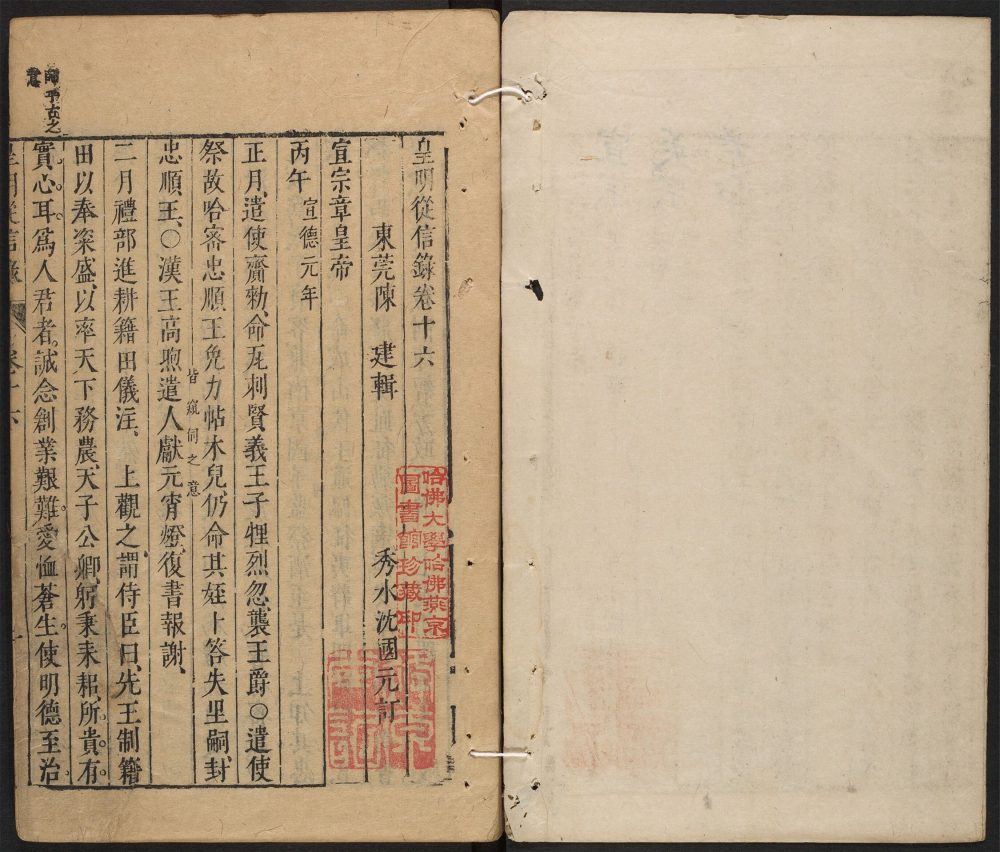 皇明從信錄卷十六
東莞陳 建輯 秀水沈國元訂
宣宗章皇帝
丙午宣德元年
正月、遣使齎勑、命瓦刺賢義王子狸烈忽襲王爵〇遣使
祭故哈密忠順王免力帖木兒仍命其姪十答失里嗣封
忠順王、〇漢王高煦遣人獻元宵燈、復書報謝、
皆窺伺之意
二月禮部進耕籍田儀注、上觀之謂侍臣曰、先王制籍
田以奉粢盛、以率天下務農、天子公卿、躬秉耒耜、所貴有
實心耳、爲人君者、誠念創業艱難、愛恤蒼生、使明德至治
卷十六
之
意
哈佛大學哈佛燕京
圖書館珍藏印